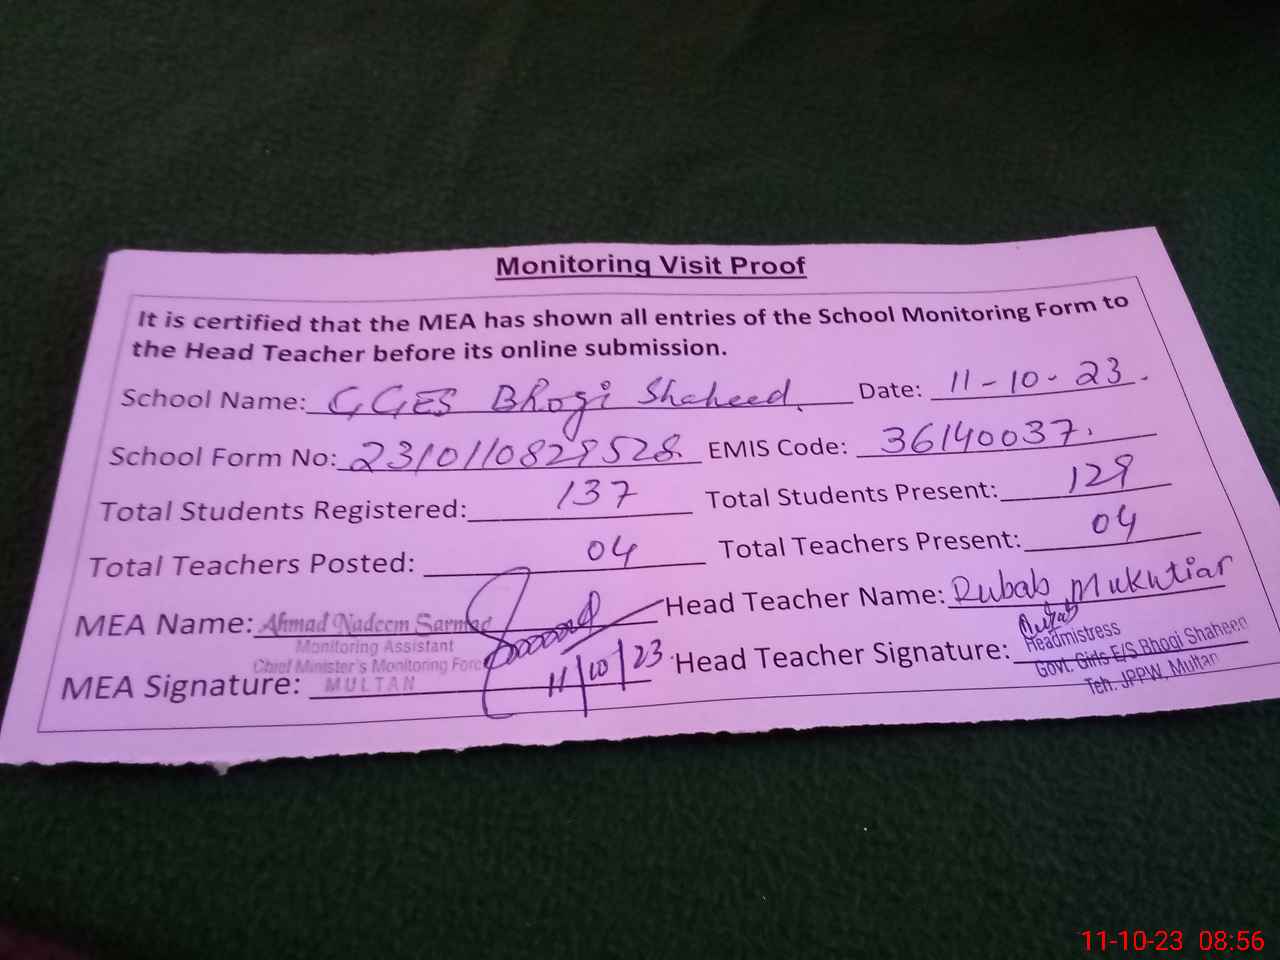 Monitoring Visit Proof
It is certified that the MEA has shown all entries of the School Monitoring Form to
the Head Teacher before its online submission.
School Name: GGES Bhogi Shaheed. Date: 11-10-23.
School Form No: 2310110829528. EMIS Code: 36140037.
Total Students Registered: 137 Total Students Present: 129
Total Teachers Posted: 04 Total Teachers Present: 04
MEA Name: Ahmad Nadeem Sarmad Head Teacher Name: Rubab Mukhtiar
Monitoring Assistant
Chief Minister's Monitoring Force
MULTAN
MEA Signature: 11/10/23 Head Teacher Signature: Rubab
Headmistress
Govt. Girls E/S Bhogi Shaheen
Teh. JPPW, Multan
11-10-23 08:56